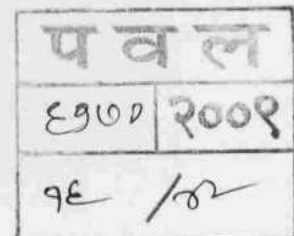 प व ल
६१७० २००९
१६ /४२